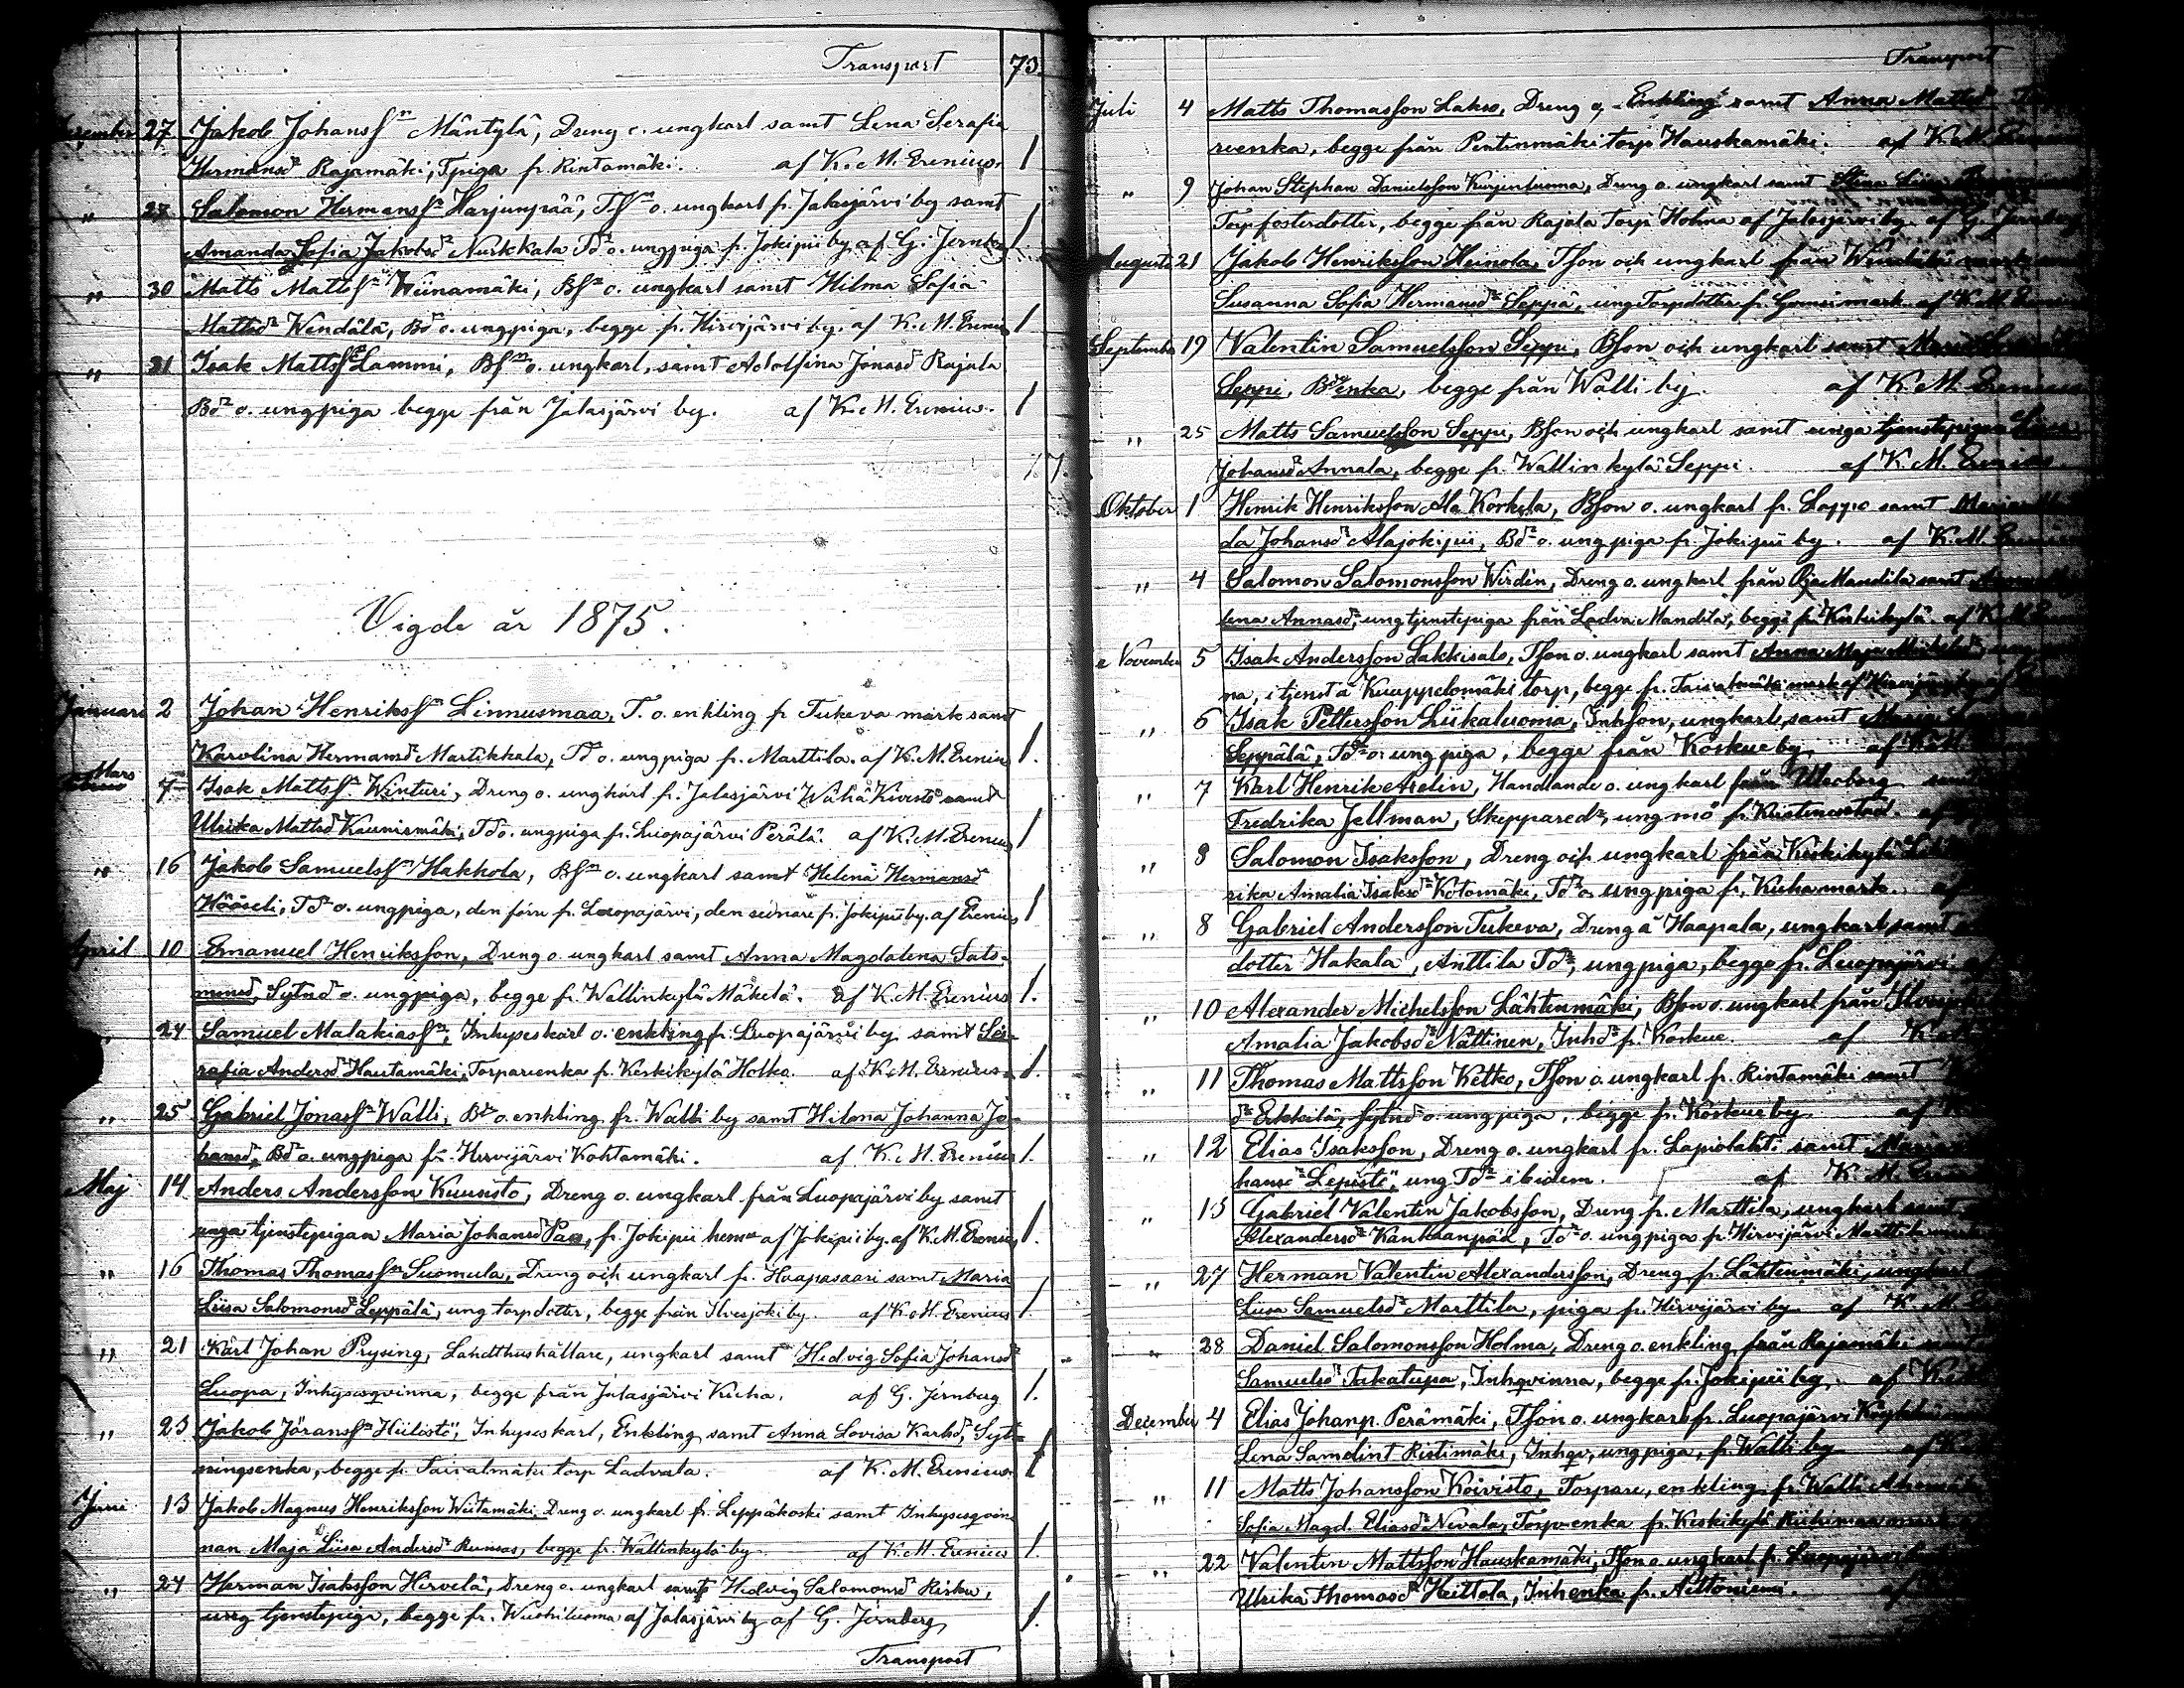 Transport 73.
27 Jakob Johansſn Mäntylä, Dreng o. ungkarl samt Lena Serafia
Hermansdr Rajamäki, Tpiga fr. Rintamäki. af K. M. Erenius. 1
" 27 Salomon Hermansſn Harjunpää, Tſn o. ungkarl fr. Jalasjärvi by samt
Amanda Sofia Jakobsdr Nurkkala Tdr o. ungpiga fr. Jokipii by af G. Jernberg 1
" 30 Matts Mattsſn Wiinamäki, Bſn o. ungkarl samt Hilma Sofia
Mattsdr Wendälä, Bdr o. ungpiga, begge fr. Hirvijärvi by. af K. M. Erenius 1
" 31 Isak Mattsſn Lammi, Bſn o. ungkarl, samt Adolfina Jonasdr Rajala
Bdr o. ungpiga begge från Jalasjärvi by. af K. M. Erenius. 1
77.
Vigde år 1875.
Januari 2 Johan Henriksſn Linnusmaa, T. o. enkling fr Tukeva mark samt
Karolina Hermansdr Martikkala, Tdr o. ungpiga fr. Marttila. af K. M. Erenius 1.
Mars 7 Isak Mattsſn Winturi, Dreng o. ungkarl fr. Jalasjärvi Wähä Kivistö samt
Ulrika Mattsdr Kaunismäki, Tdr o. ungpiga fr. Luopajärvi Perälä. af K. M. Erenius 1
" 16 Jakob Samuelsſn Hakkola, Bſn o. ungkarl samt Helena Hermansdr
Tdr o. ungpiga, den förre fr. Luopajärvi, den senare fr. Jokipii by. af Erenius 1
April 10 Emanuel Henriksſon, Dreng o. ungkarl samt Anna Magdalena Salo-
monsdr, Sytndr o. ungpiga, begge fr. Wallinkylä Mäkelä. af K. M. Erenius 1.
" 24 Samuel Malakiasſn, Inhyseskarl o. enkling fr. Luopajärvi by samt Se-
rafia Andersdr Hautamäki, Torparenka fr. Keskikylä Holka. af K. M. Erenius. 1.
" 25 Gabriel Jonasſn Walli, Bde o. enkling fr. Walli by samt Hilma Johanna Jo-
hansdr, Bdr o. ungpiga fr. Hirvijärvi Kohtamäki. af K. M. Erenius 1.
Maj 14 Anders Andersſon Kuusisto, Dreng o. ungkarl från Luopajärvi by samt
unga tjenstepigan Maria Johansdr fr. Jokipii hemm af Jokipii by. af K. M. Erenius 1.
" 16 Thomas Thomasſn Suomula, Dreng och ungkarl fr. Haapasaari samt Maria
Liisa Salomonsdr Leppälä, ung torpdotter, begge från Ilvesjoki by. af K. M. Erenius 1.
" 21 Karl Johan Prysing, Landthushållare, ungkarl samt Hedvig Sofia Johansdr
Luopa, Inhysesqvinna, begge från Jalasjärvi Kuha. af G. Jernberg 1.
" 23 Jakob Jöransſn Hiilistö, Inhyseskarl, Enkling samt Anna Lovisa Karlsdr, Syt-
ningsenka, begge fr. Taivalmäki torp Ladvala. af K. M. Erenius. 1
Juni 13 Jakob Magnus Henriksſon Wiitamäki, Dreng o. ungkarl fr. Leppäkoski samt Inhysesqvin-
nan Maja Liisa Andersdr begge fr. Wallinkylä by. af K. M. Erenius 1.
" 24 Herman Isaksſon Hirvelä, Dreng o. ungkarl samt Hedvig Salomonsdr Risku,
ung tjenstepiga, begge fr. af Jalasjärvi by af G. Jernberg 1.
Transport
Transport
Juli 4 Matts Thomasſon Lakso, Dreng o. Enkling samt Anna Mattsdr
renka, begge från Pentinmäki torp Hauskamäki. af K. M.
" 9 Johan Stephan Danielsſon Kurjenluoma, Dreng o. ungkarl samt Stina
Torpfosterdotter, begge från Rajala Torp Holma af Jalasjärvi by. af G. Jernberg
Augusti 21 Jakob Henriksſon Heinola, Tſon och ungkarl från
Susanna Sofia Hermansdr Seppä, ung Torpdotter fr. mark af K. M.
September 19 Valentin Samuelsſon Seppi, Bſon och ungkarl samt
Seppi, Bdeenka, begge från Walli by. af K. M. Erenius
" 25 Matts Samuelsſon Seppi, Bſon och ungkarl samt unga tjenstepigan
Johansdr Annala, begge fr. Wallinkylä Seppi. af K. M. Erenius
Oktober 1 Henrik Henriksſon Ala Korkela, Bſon o. ungkarl fr. Lappo samt
da Johansdr Alajokipii, Bdr o. ungpiga fr. Jokipii by. af K. M.
" 4 Salomon Salomonsſon Wirdén, Dreng o. ungkarl från Oja Mandila samt
lena Annasdr, ung tjenstepiga från Ladva Mandila, begge fr. Keskikylä af K. M.
November 5 Isak Andersſon Lakkisalo, Tſon o. ungkarl samt Anna Maja
na, i tjenst å Kuuppelomäki torp, begge fr. Taivalmäki mark af
" 6 Isak Pettersſon Liikaluoma, Inhson, ungkarl, samt Maria
Seppälä, Tdr o. ung piga, begge från Koskue by. af K. M.
" 7 Karl Henrik Handlande o. ungkarl från Uleåborg samt
Fredrika Jellman, Skepparedr, ung mö fr. Kristinestad. af
" 8 Salomon Isaksſon, Dreng och ungkarl från Keskikylä
rika Amalia Isaksdr Kotomäki, Tdr o. ungpiga fr. Kuha mark. af
" 8 Gabriel Andersſon Tukeva, Dreng å Haapala, ungkarl, samt
dotter Hakala, Anttila Tdr, ungpiga, begge fr. Luopajärvi
" 10 Alexander Michelsſon Lähtenmäki, Bſon o. ungkarl från
Amalia Jakobsdr Nättinen, Inhdr fr. Koskue. af K. M.
" 11 Thomas Mattsſon Ketko, Tſon o. ungkarl fr. Rintamäki samt
dr Erkkilä, Sytndr o. ungpiga, begge fr. Koskue by af
" 12 Elias Isaksſon, Dreng o. ungkarl fr. Lapiolahti samt Maria
hansdr Lepistö, ung Tdr ibidem. af K. M.
" 13 Gabriel Valentin Jakobsſon, Dreng fr. Marttila, ungkarl samt
Alexandersdr Kankaanpää, Tdr o. ungpiga fr. Hirvijärvi Marttila
" 27 Herman Valentin Alexandersſon, Dreng fr. Lähtenmäki, ungkarl
Liisa Samuelsdr Marttila, piga fr. Hirvijärvi by. af K. M.
" 28 Daniel Salomonsſon Holma, Dreng o. enkling från Rajamäki samt
Samuelsdr Takatupa, Inhqvinna, begge fr. Jokipii by. af K. M.
December 4 Elias Johanp. Perämäki, Tſon o. ungkarl fr. Luopajärvi
Lena Samelint Ristimäki, Inhqv, ungpiga, fr. Walli by af K.
" 11 Matts Johansſon Koivisto, Torpare, enkling fr. Walli
Sofia Magd. Eliasdr Nevala, Torp-enka fr. Keskikylä
" 22 Valentin Mattsſon Hauskamäki, Tſon o. ungkarl fr. Luopajärvi
Ulrika Thomasdr Heittola, Inhenka fr. af